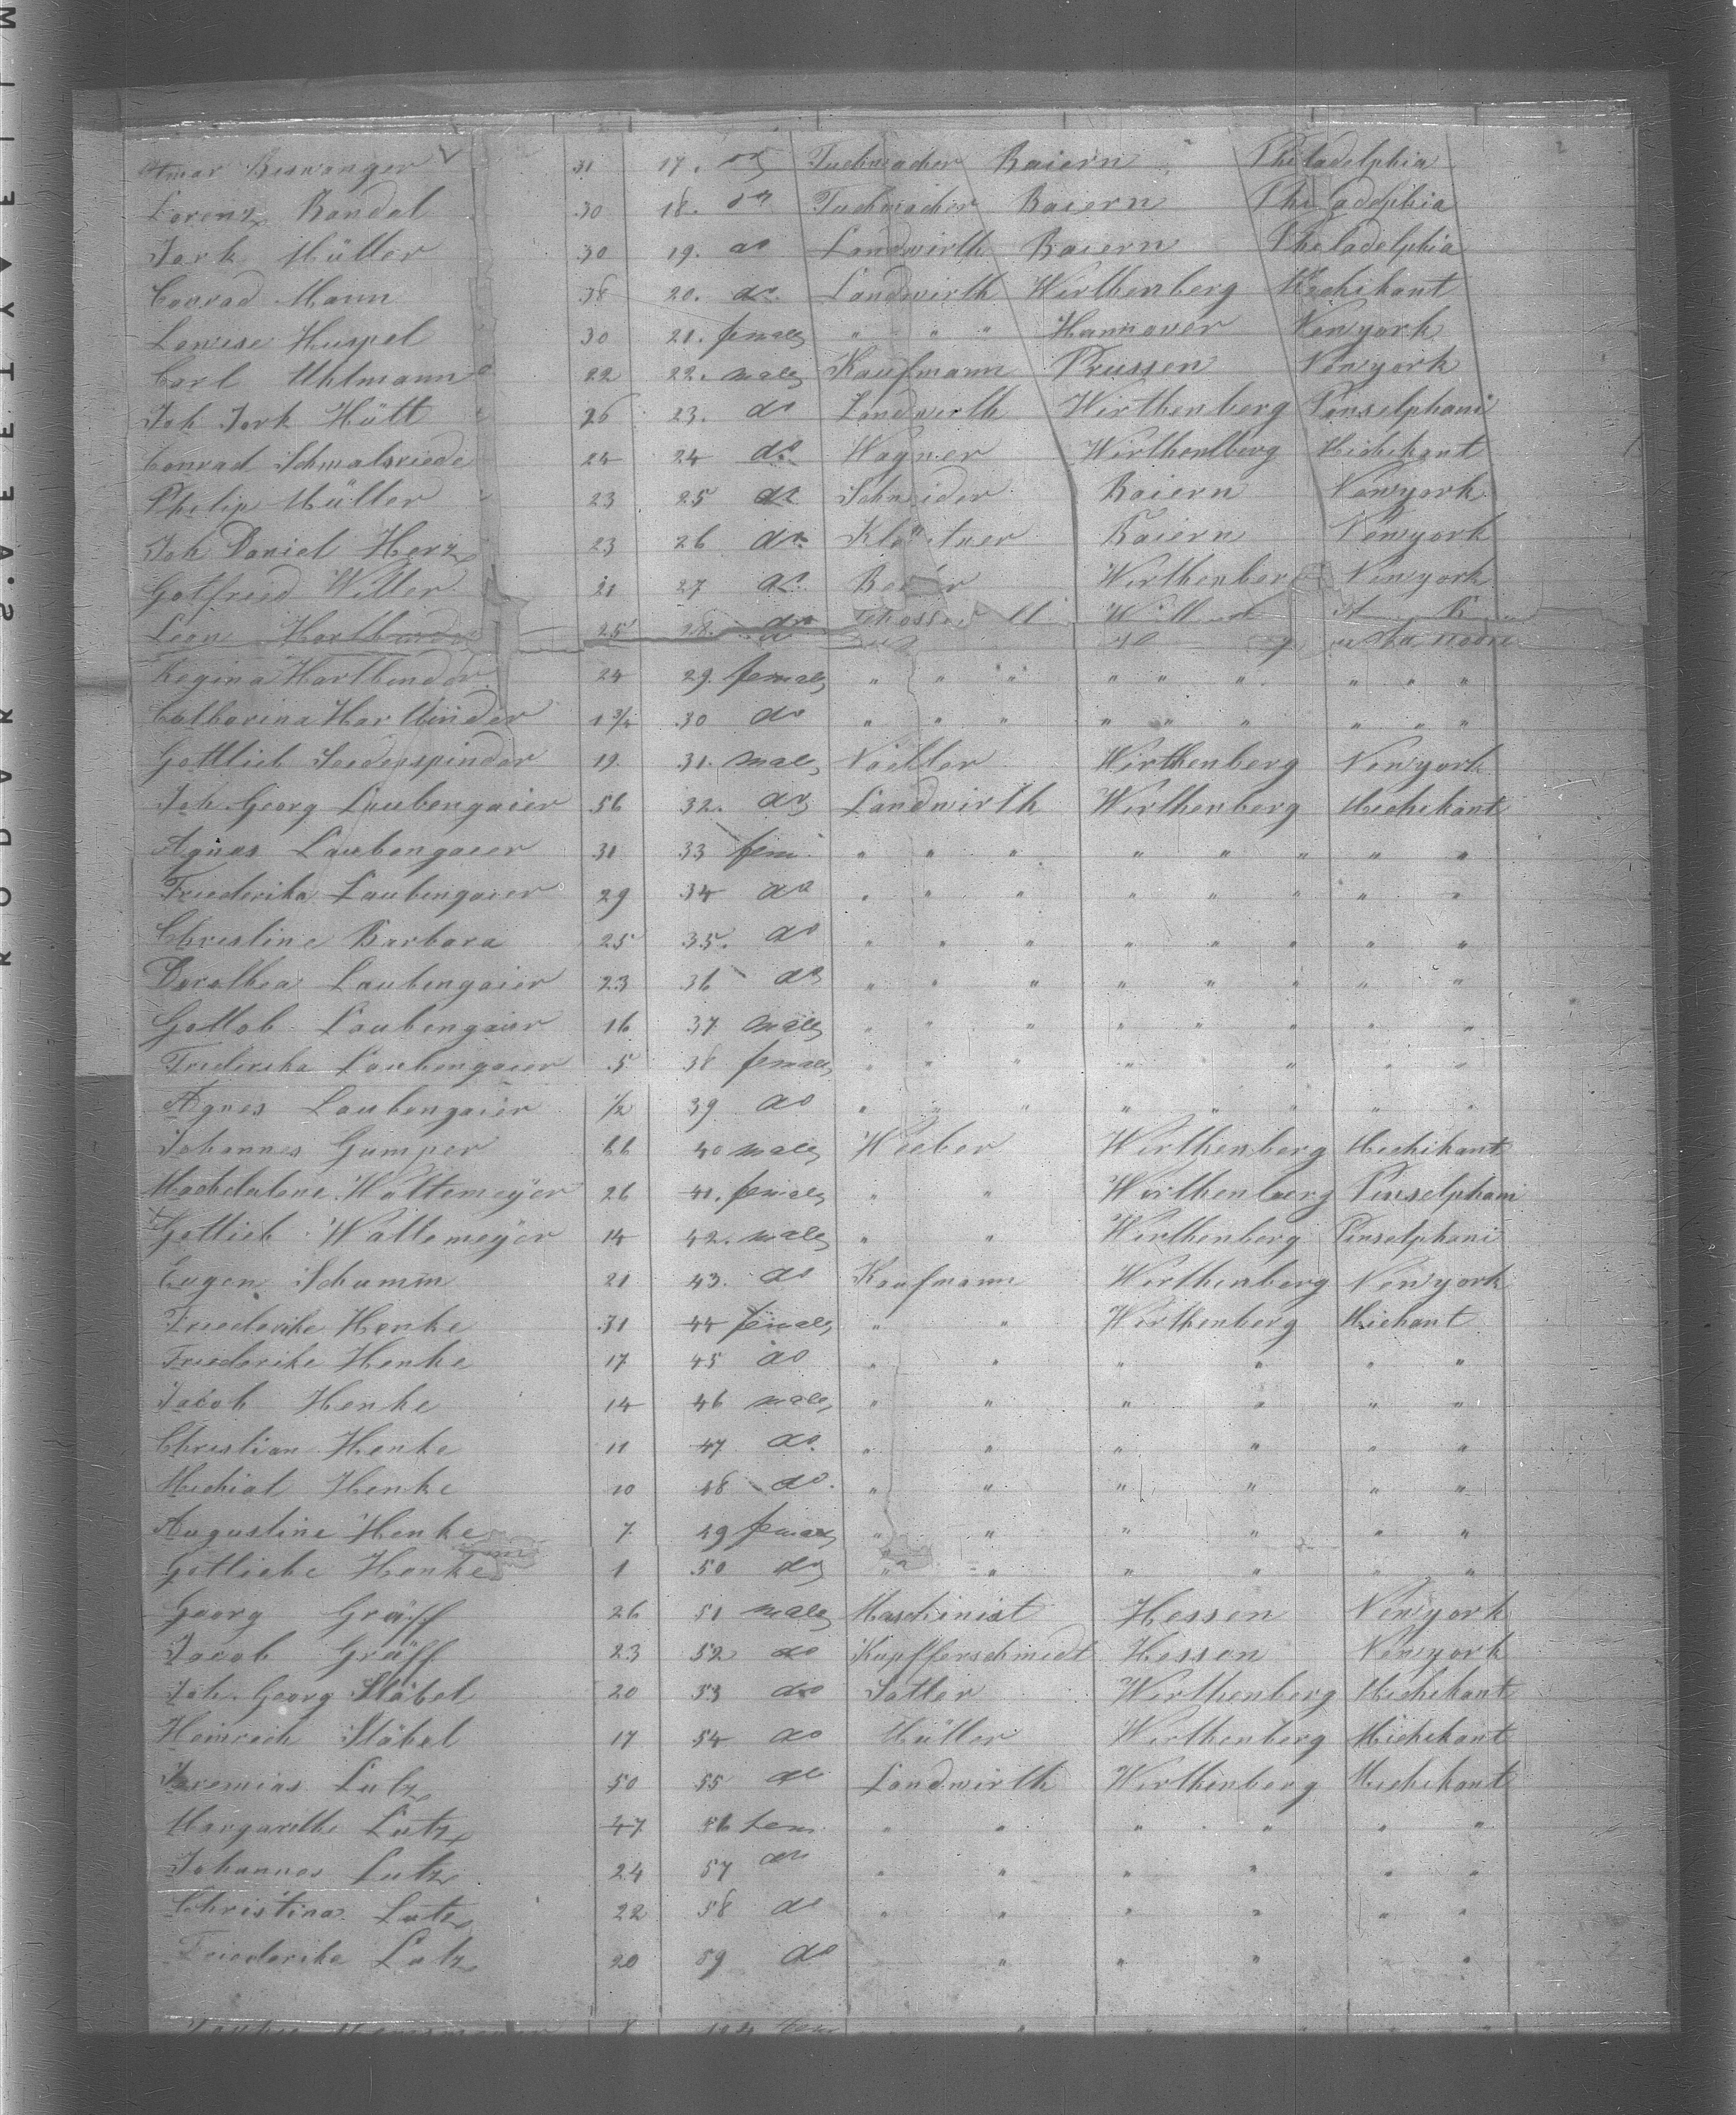 Beswanger 31 17. do Tuchmacher Baiern Philadelphia
Lorenz Bandal 30 18. do Tuchmacher Baiern Philadelphia
Jork Müller 30 19. do Landwirth Baiern Pheladelphia
Conrad Mann 38 20. do. Landwirth Wirthenberg Mechikant
Lowise Huspel 30 21. female " " " Hannover Newyork
Carl Uhlmann 22 22. male Kaufmann Prussen Newyork
Joh Jork Hütt 26 23. do Landwirth Wirthenberg Penselphani
Conrad Schmalsriede 24 24 do Wagner Wirthenlberg Mechikant
Philip Müller 23 25 do Schneider Baiern Newyork
Joh Daniel Herz 23 26 do Baiern Newyork
Gotfried Willer 21 27 do. Wirthenberg Newyork
Leon 25 28. do
Regina Hartbender 24 29. female " " " " " " " " "
Catharina Hartbinder 1 3/4 30 do " " " " " " " " "
Gottlieb Seederspinder 19 31. male Wirthenberg Newyork
Joh. Georg Laubengaier 56 32. do Landwirth Wirthenberg Mechekant
Agnes Laubengaier 31 33 fem. " " " " " " " "
Friederika Laubengaier 29 34 do " " " " " " " "
Christine Barbara 25 35. do " " " " " " " "
Dorothea Laubengaier 23 36 do " " " " " " " "
Gottlob Laubengaier 16 37 male " " " " " " " "
Friederika Laubengaier 5 38 female " " " " " " "
Agnes Laubengaier 1/2 39 do " " " " " " " "
Johannes Gumper 66 40 male Weeber Wirthenberg Mechikant
Machdalena Wattemeÿer 26 41. female " " Wirthenberg Penselphani
Gottlieb Wattemeÿer 14 42. male " " Wirthenberg Penselphani
Eugen Schumm 21 43. do Kaufmann Wirthenberg Newyork
Friederike Henke 31 44 female " " Wirthenberg Michant
Friederike Henke 17 45 do " " " " " "
Jacob Henke 14 46 male " " " " " "
Christian Henke 11 47 do. " " " " " "
Mechial Henke 10 48 do. " " " " " "
Augustine Henke 7 49 female " " " " " "
Gottliebe Henke 1 50 do " " " " " "
Georg Gräff 26 51 male Maschinist Hessen Newyork
Jacob Gräff 23 52 do Kupfferschmidt Hessen Newyork
Joh. Georg Stäbel 20 53 do Satler Wirthenberg Mechekant
Heinrich Stäbel 17 54 do Müller Wirthenberg Mechekant
Jeremias Lutz 50 55 do Landwirth Wirthenberg Mechekant
Margarethe Lutz 47 56 fem. " " " " " "
Johannes Lutz 24 57 do " " " " " "
Christina Lutz 22 58 do " " " " " "
Friederike Lutz 20 59 do " " " "